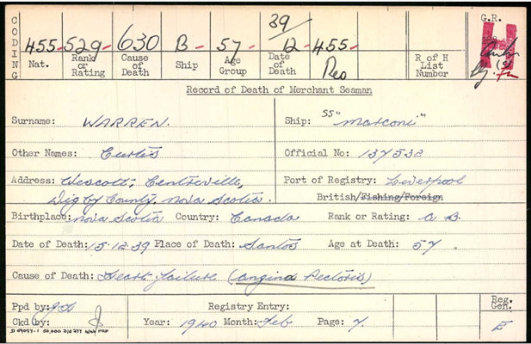 CODING
455- 529- 630 B- 57- 39/12- 455-
Nat. Rank or Rating Cause of Death Ship Age Group Date of Death Pco R of H List Number
G.R.
H
Record of Death of Merchant Seaman
Surname: WARREN. Ship: SS "Marconi"
Other Names: Curtis Official No: 137532
Address: Wescott, Centreville, Port of Registry: Liverpool
Digby County, Nova Scotia. British/Fishing/Foreign
Birthplace: Nova Scotia Country: Canada Rank or Rating: A B.
Date of Death: 15.12.39 Place of Death: Santos Age at Death: 57.
Cause of Death: Heart failure (angina Pectoris)
Ppd by: Registry Entry: Reg. Gen.
Ckd by: Year: 1940 Month: Feb Page: 7. E